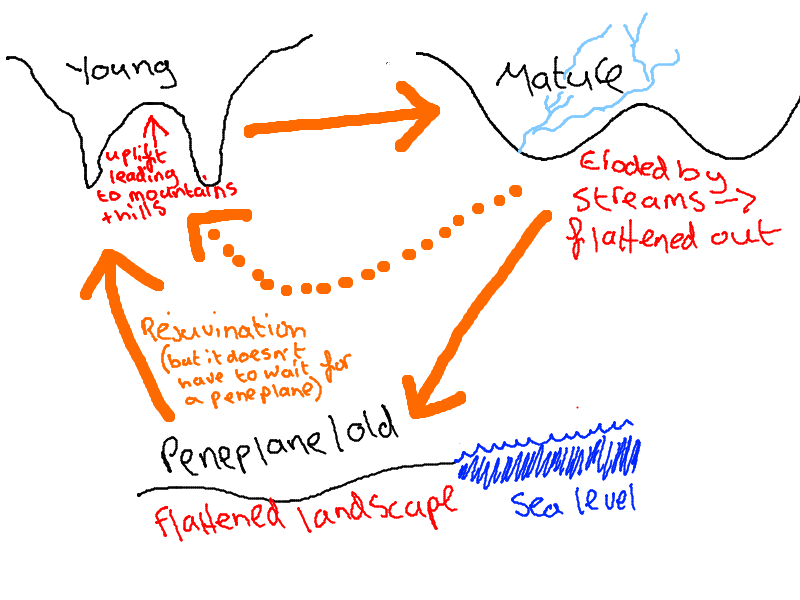 Young
uplift
leading
to mountains
+ hills
Mature
Eroded by
streams →
flattened out
Rejuvination
(but it doesn't
have to wait for
a peneplane)
Peneplane/old
flattened landscape
Sea level